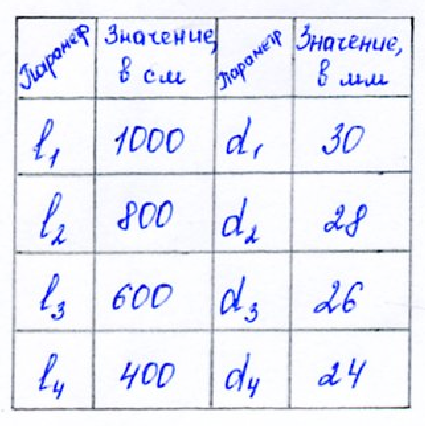 Параметр Значение, в см Параметр Значение, в мм
l₁ 1000 d₁ 30
l₂ 800 d₂ 28
l₃ 600 d₃ 26
l₄ 400 d₄ 24